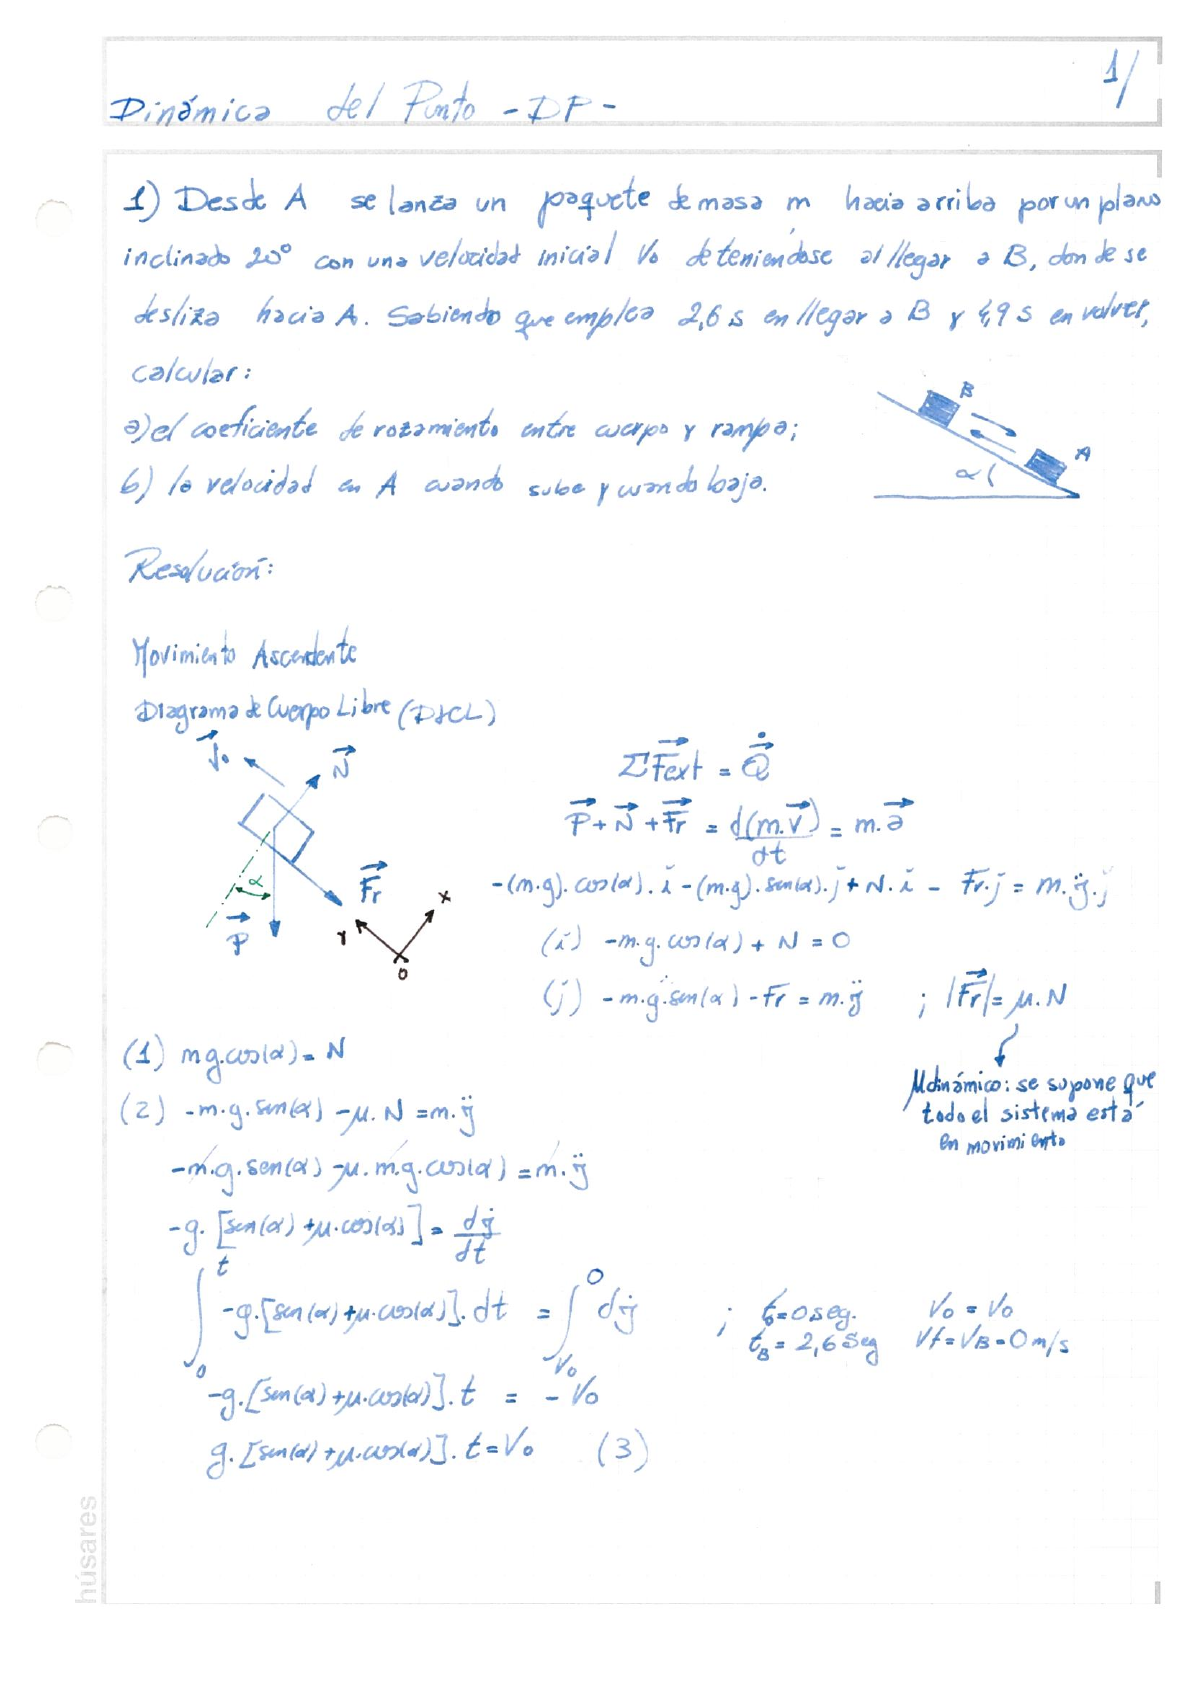 1/
Dinámica del Punto - DP -
1) Desde A se lanza un paquete de masa m hacia arriba por un plano
inclinado 20° con una velocidad inicial V₀ deteniéndose al llegar a B, donde se
desliza hacia A. Sabiendo que emplea 2,6 s en llegar a B y 4,9 s en volver,
calcular:
a) el coeficiente de rozamiento entre cuerpo y rampa;
b) la velocidad en A cuando sube y cuando baja.
B
A
α
Resolución:
Movimiento Ascendente
Diagrama de Cuerpo Libre (DCL)
V⃗₀ N⃗
α F⃗r
P⃗
Y X
O
ΣF⃗ext = Q⃗̇
P⃗ + N⃗ + F⃗r = d(m.v⃗)/dt = m.a⃗
-(m.g).cos(α).ǐ -(m.g).sen(α).ǰ + N.ǐ - Fr.ǰ = m.ÿ.ǰ
(ǐ) -m.g.cos(α) + N = 0
(ǰ) -m.g.sen(α) - Fr = m.ÿ ; |F⃗r| = μ.N
μdinámico: se supone que
todo el sistema está
en movimiento
(1) mg.cos(α) = N
(2) -m.g.sen(α) - μ.N = m.ÿ
-m.g.sen(α) - μ.m.g.cos(α) = m.ÿ
-g.[sen(α) + μ.cos(α)] = dẏ/dt
∫₀ᵗ -g.[sen(α) + μ.cos(α)].dt = ∫_V₀^0 dẏ ; t₀ = 0 seg. V₀ = V₀
t_B = 2,6 seg Vf = V_B = 0 m/s
-g.[sen(α) + μ.cos(α)].t = - V₀
g.[sen(α) + μ.cos(α)].t = V₀ (3)
húsares